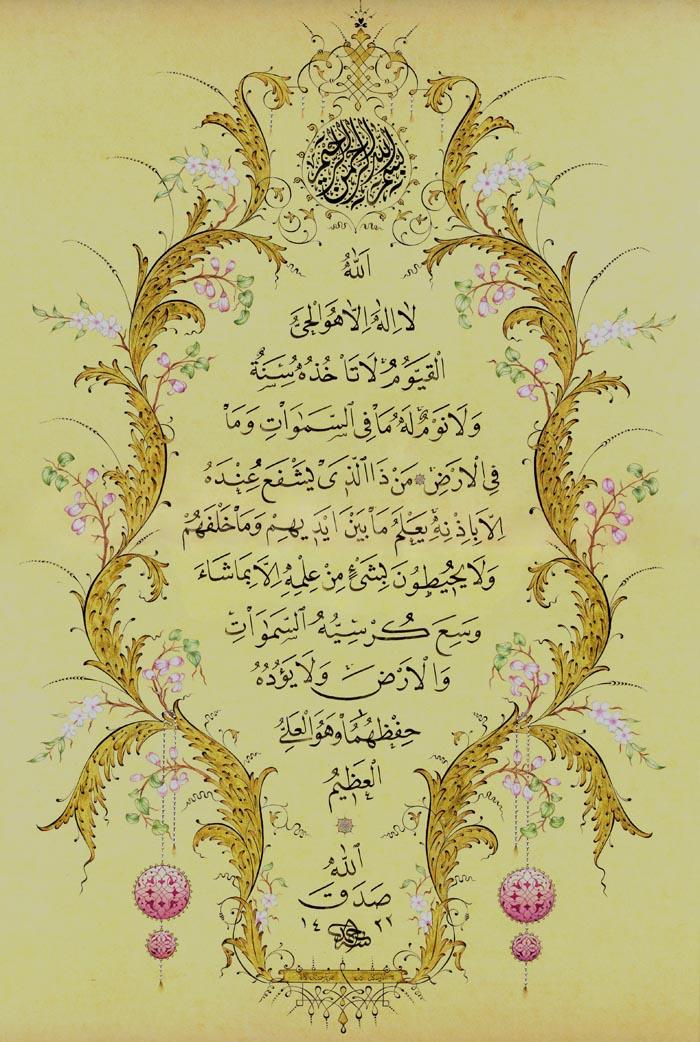 بسم الله الرحمن الرحيم
اَللهُ
لَا اِلٰهَ اِلَّا هُوَ الْحَيُّ
الْقَيُّومُ لَا تَاْخُذُهُ سِنَةٌ
وَلَا نَوْمٌ لَهُ مَا فِي السَّمٰوَاتِ وَمَا
فِي الْاَرْضِ مَنْ ذَا الَّذِي يَشْفَعُ عِنْدَهُ
اِلَّا بِاِذْنِهِ يَعْلَمُ مَا بَيْنَ اَيْدِيهِمْ وَمَا خَلْفَهُمْ
وَلَا يُحِيطُونَ بِشَيْءٍ مِنْ عِلْمِهِ اِلَّا بِمَا شَاءَ
وَسِعَ كُرْسِيُّهُ السَّمٰوَاتِ
وَالْاَرْضَ وَلَا يَؤُدُهُ
حِفْظُهُمَا وَهُوَ الْعَلِيُّ
الْعَظِيمُ
صدق الله
١٤٢٢